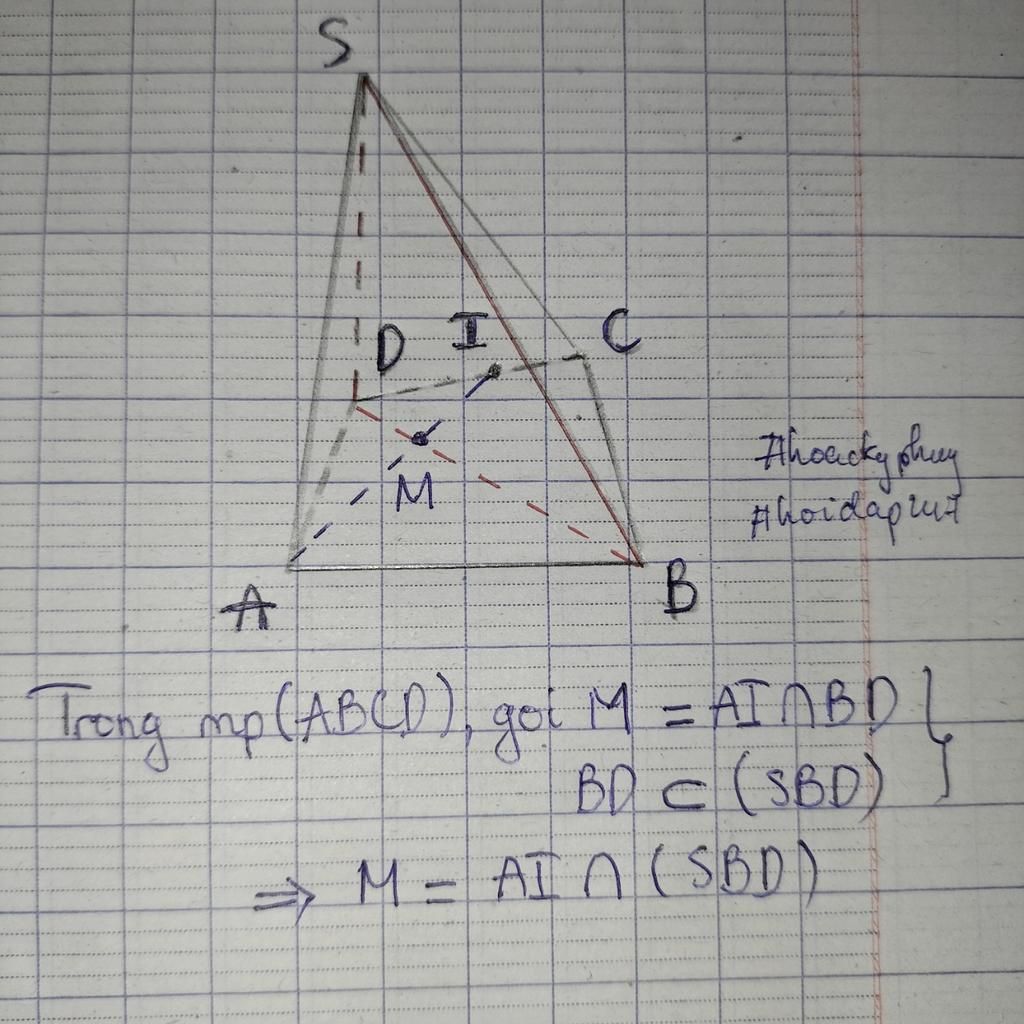 S
D
I
C
M
A
B
#hoidap247
Trong mp(ABCD), gọi M = AI∩BD }
BD ⊂ (SBD)
=> M = AI ∩ (SBD)